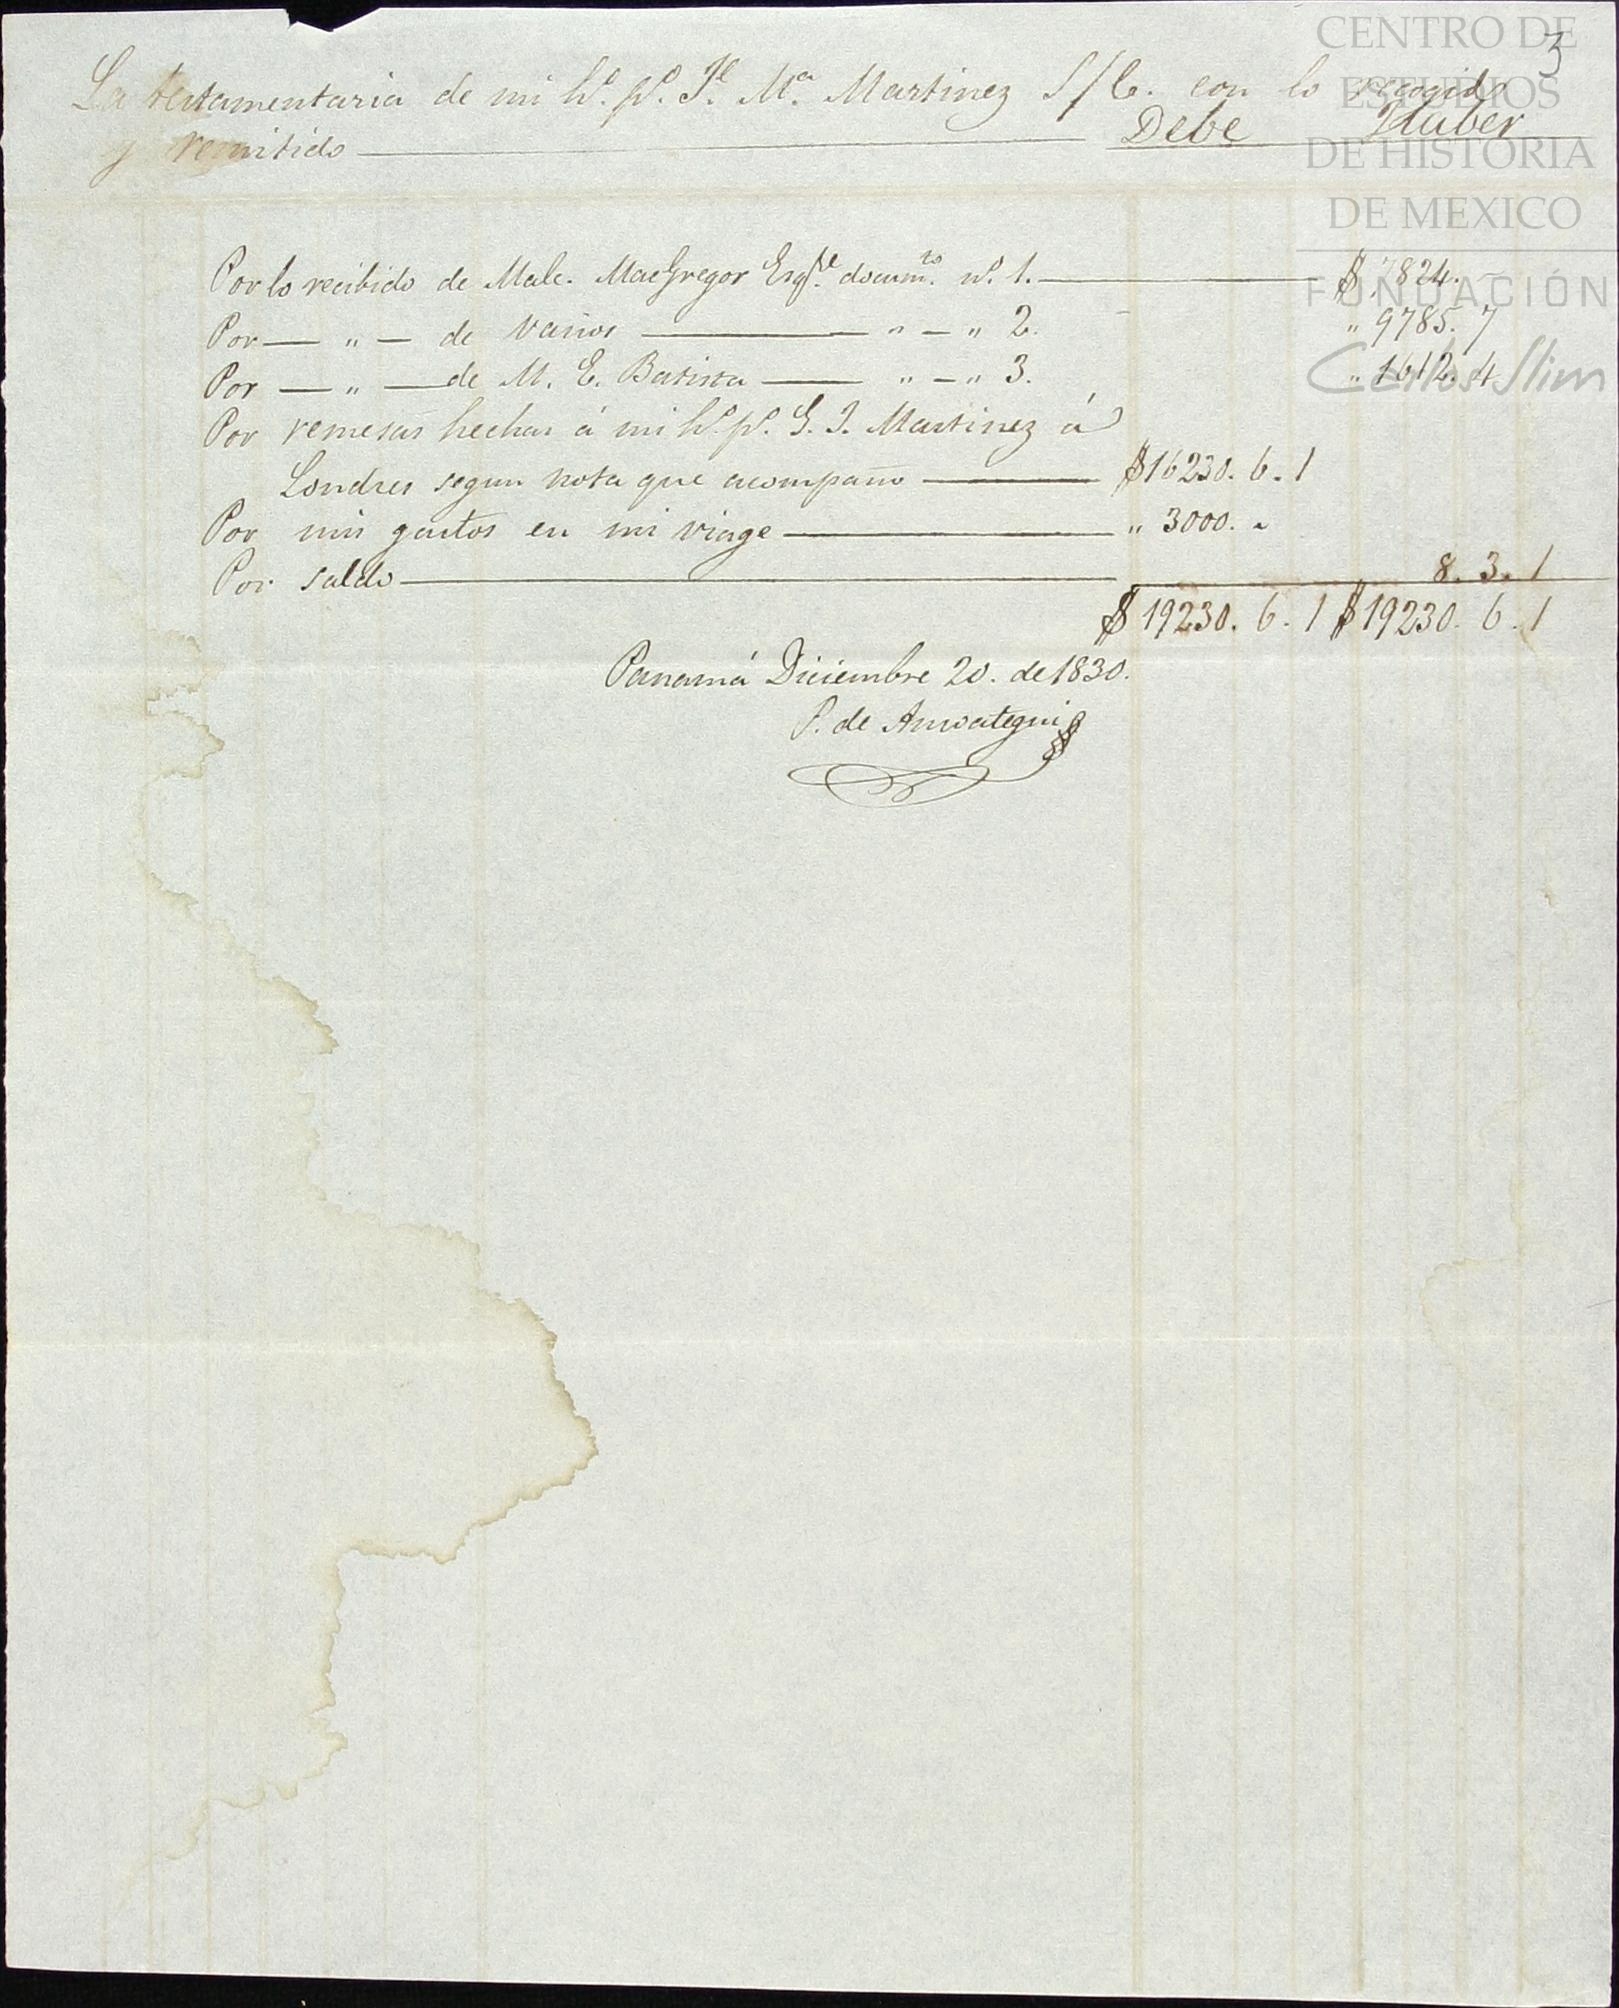 3
La testamentaria de mi h.º p.º J.e M.a Martinez S/C. con lo recogido
y remitido Debe Haber
Por lo recibido de Malc. MacGregor Esq.re docum.to n.º 1. $ 7824. –
Por — " — de varios " — " 2. " 9785. 7
Por — " — de M. E. Batista " — " 3. " 1612. 4
Por remesas hechas á mi h.º p.º G. J. Martinez á
Londres segun nota que acompaño $16230. 6. 1
Por mis gastos en mi viage " 3000. "
Por saldo 8. 3. 1
$ 19230. 6. 1 $ 19230. 6. 1
Panamá Diciembre 20. de 1830.
P. de
CENTRO DE
ESTUDIOS
DE HISTORIA
DE MEXICO
FUNDACIÓN
Carlos Slim